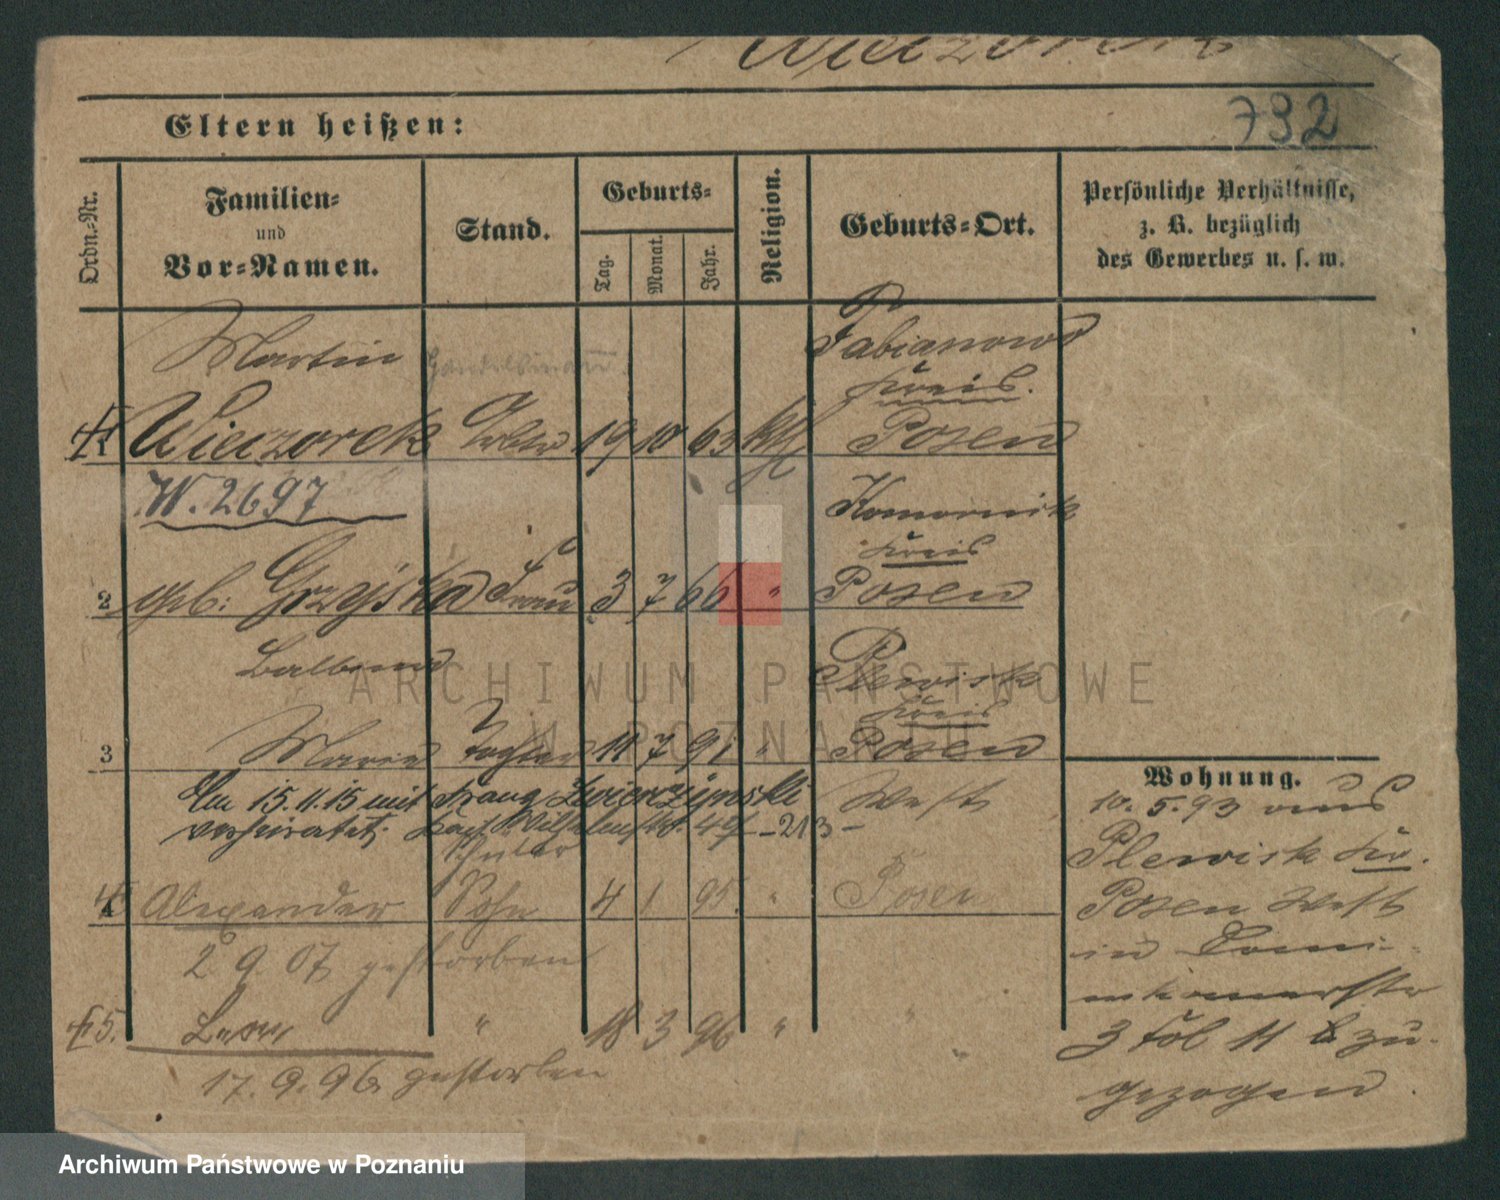 Wieczorek
732
Eltern heißen:
Ordn.-Nr.
Familien-
und
Vor-Namen.
Stand.
Geburts-
Tag.
Monat.
Jahr.
Religion.
Geburts-Ort.
Persönliche Verhältnisse,
z. B. bezüglich
des Gewerbes u. s. w.
Martin Handelsmann. Fabianowo
Kreis.
1 Wieczorek 19 10 63 kth Posen
W. 2697
Komornik
Kreis
2 geb: Grzejska Frau 3 7 66 " Posen
Balbina
Plewisk
Kreis
3 Marie Tochter 11 7 91 " Posen
Am 15.11.15 mit Franz Zwierzynski West
verheiratet. 213
Schüler
4 Alexander Sohn 4 1 95. " Posen
2 9 07 gestorben
5. Leon " 18 3 96 " "
17. 9. 96 gestorben
Wohnung.
10. 5. 93 aus
Plewisk Kr.
Posen West
in Domi-
nikanerstr
3 bei zu-
gezogen.
ARCHIWUM PAŃSTWOWE
W POZNANIU
Archiwum Państwowe w Poznaniu